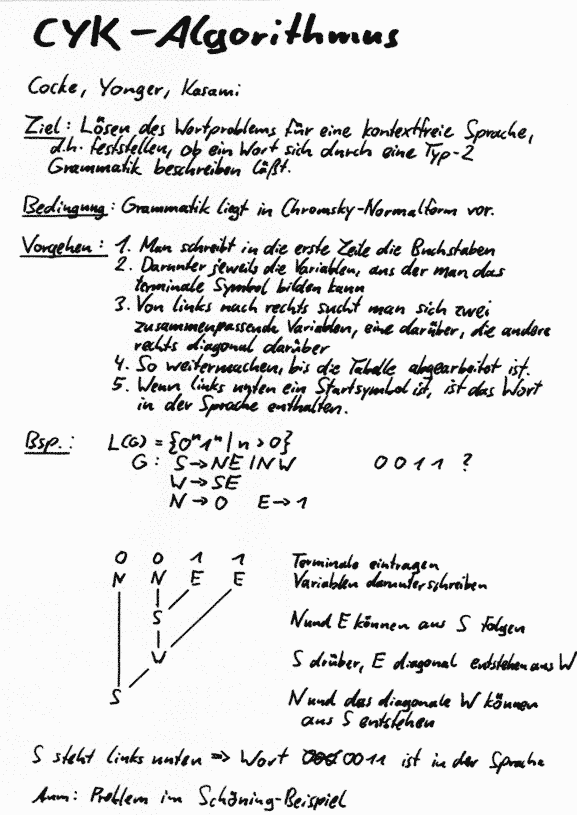 CYK-Algorithmus
Cocke, Yonger, Kasami
Ziel: Lösen des Wortproblems für eine kontextfreie Sprache,
d.h. feststellen, ob ein Wort sich durch eine Typ-2
Grammatik beschreiben läßt.
Bedingung: Grammatik liegt in Chromsky-Normalform vor.
Vorgehen: 1. Man schreibt in die erste Zeile die Buchstaben
2. Darunter jeweils die Variablen, aus der man das
terminale Symbol bilden kann
3. Von links nach rechts sucht man sich zwei
zusammenpassende Variablen, eine darüber, die andere
rechts diagonal darüber
4. So weitermachen, bis die Tabelle abgearbeitet ist.
5. Wenn links unten ein Startsymbol ist, ist das Wort
in der Sprache enthalten.
Bsp.: L(G) = {0ⁿ1ⁿ | n > 0}
G: S → NE | NW 0 0 1 1 ?
W → SE
N → 0 E → 1
0 0 1 1 Terminale eintragen
N N E E Variablen darunterschreiben
S N und E können aus S folgen
W S drüber, E diagonal entstehen aus W
S N und das diagonale W können
aus S entstehen
S steht links unten => Wort 0011 ist in der Sprache
Anm: Problem im Schöning-Beispiel